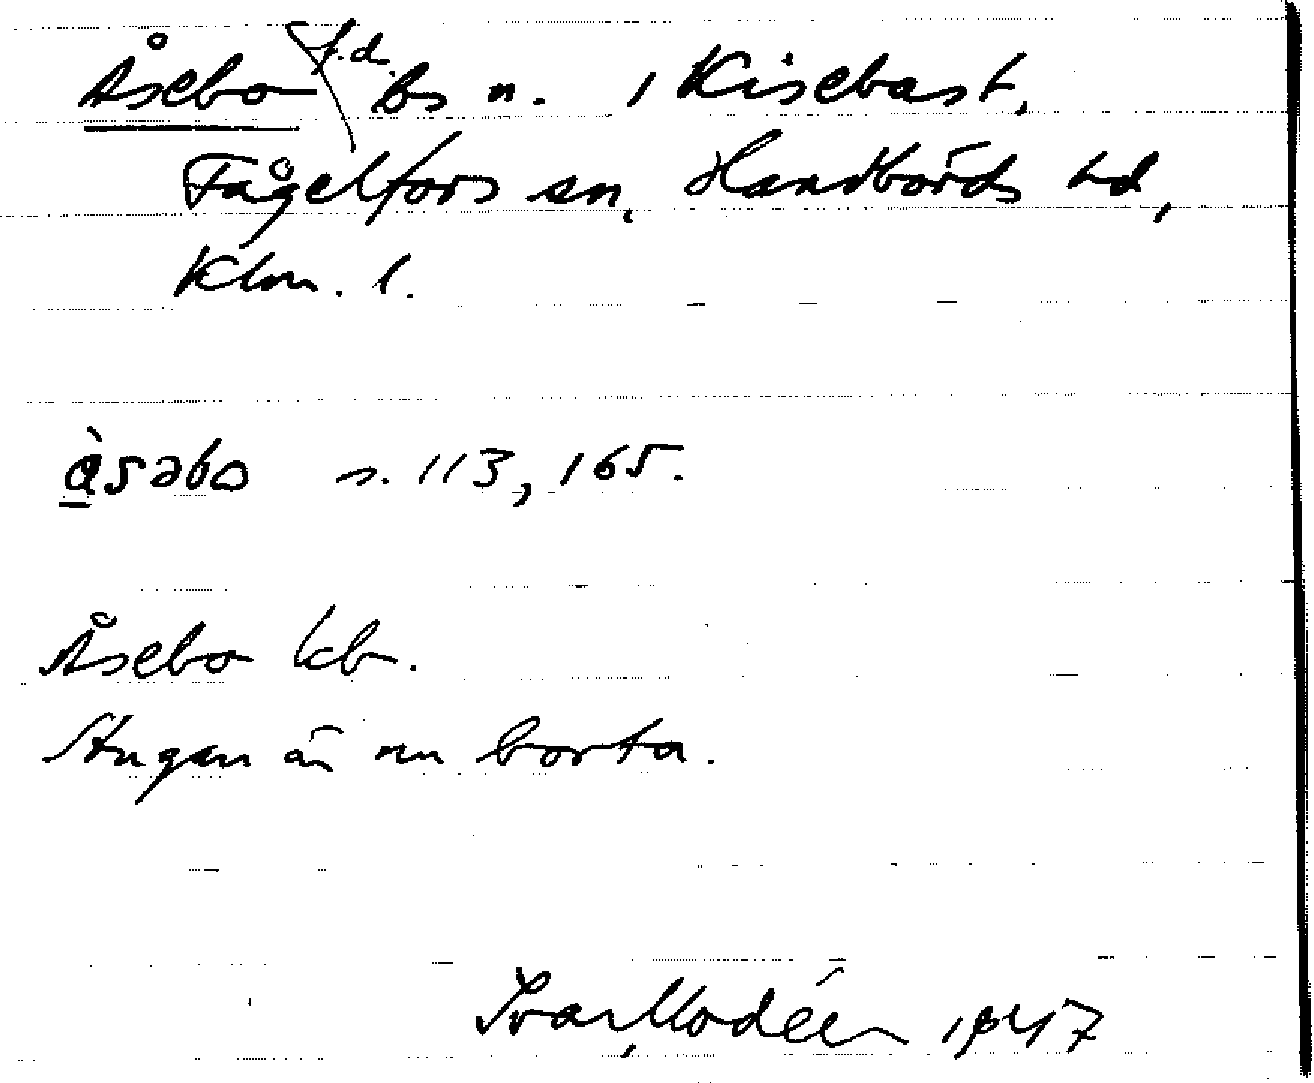 Åsebo f.d. bs n. i Kisebast,
Fågelfors sn, Handbörds hd,
Klm. l.
åsəbo s. 113, 165.
Åsebo kb.
Stugan är nu borta.
Ivar Modéer 1947